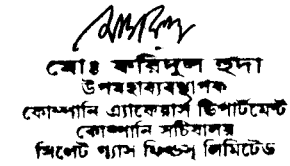 মোঃ ফরিদুল হুদা
উপমহাব্যবস্থাপক
কোম্পানি এ্যাফেয়ার্স ডিপার্টমেন্ট
কোম্পানি সচিবালয়
সিলেট গ্যাস ফিল্ডস্ লিমিটেড